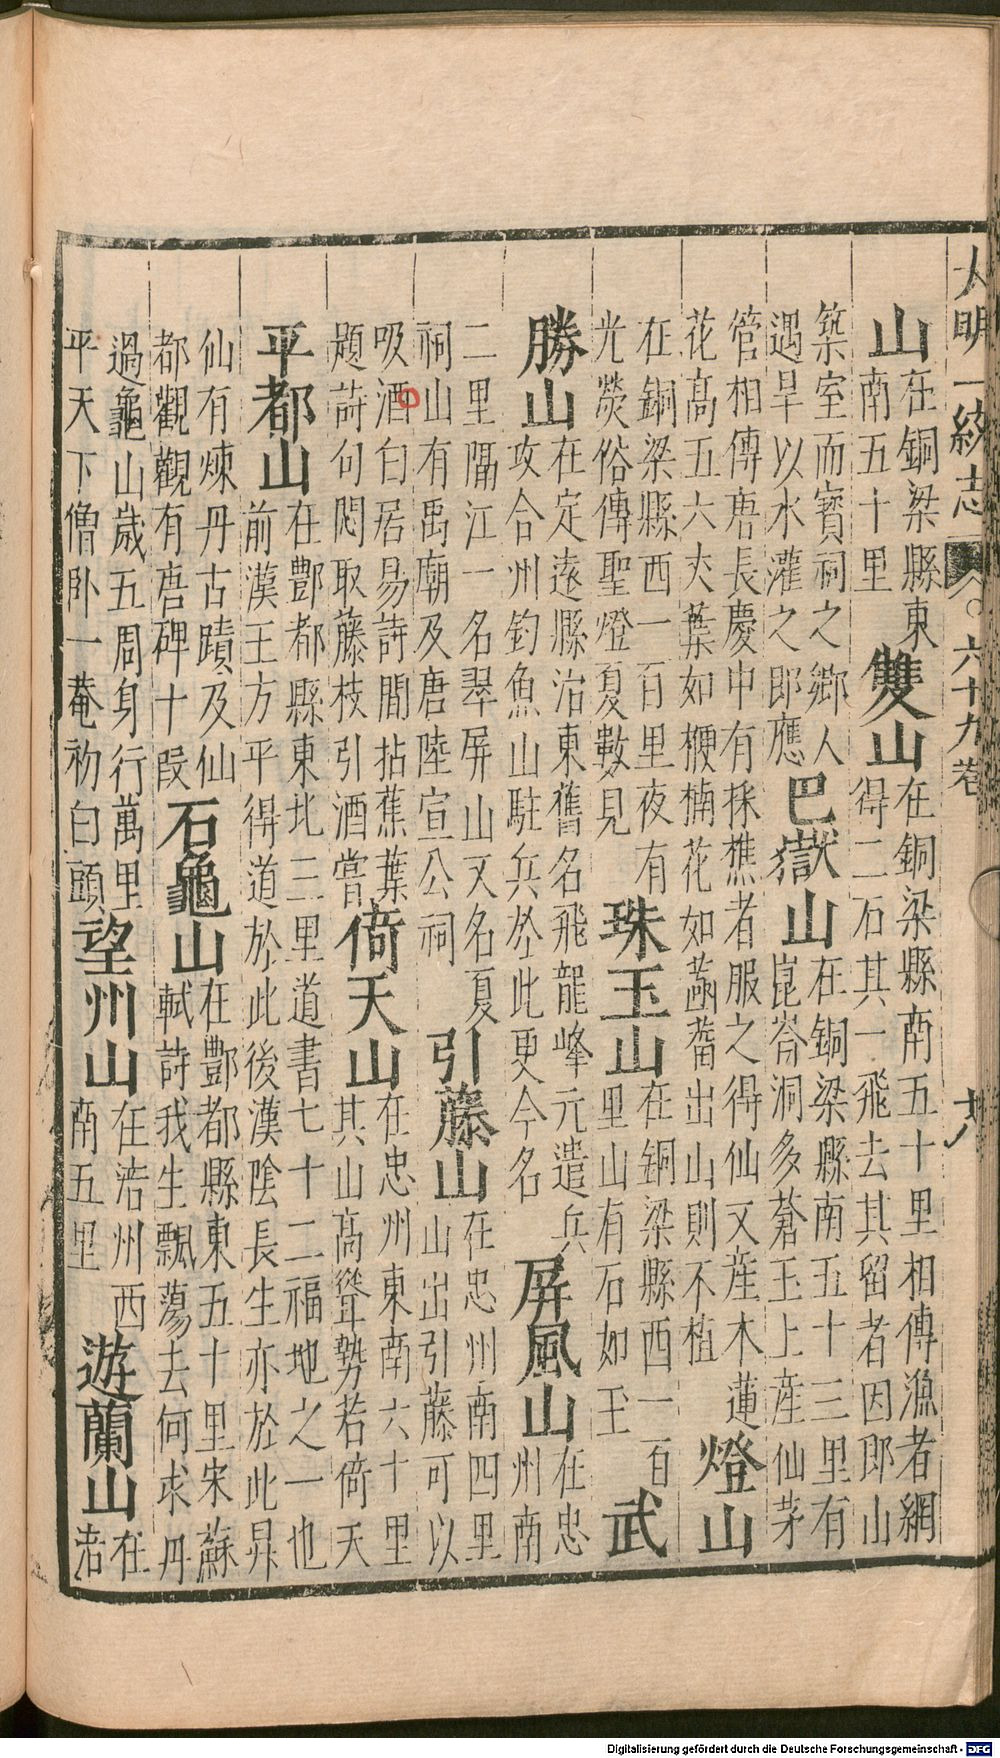 大明一統志 六十九卷 十八
山在銅梁縣東南五十里 雙山在銅梁縣南五十里相傳漁者網得二石其一飛去其留者因郎山
築室而寶祠之鄉人遇旱以水灌之即應 巴嶽山在銅梁縣南五十三里有崑崙洞多蒼玉上產仙茅
管相傳唐長慶中有採樵者服之得仙又產木蓮花高五六丈葉如楩楠花如菡萏出山則不植 燈山
在銅梁縣西一百里夜有光熒俗傳聖燈夏數見 珠玉山在銅梁縣西一百里山有石如玉 武
勝山在定遠縣治東舊名飛龍峰元遣兵攻合州釣魚山駐兵於此更今名 屏風山在忠州南
二里隔江一名翠屏山又名夏祠山有禹廟及唐陸宣公祠 引藤山在忠州南四里山出引藤可以
吸酒白居易詩閒拈蕉葉題詩句悶取藤枝引酒嘗 倚天山在忠州東南六十里其山高聳勢若倚天
平都山在酆都縣東北三里道書七十二福地之一也前漢王方平得道於此後漢陰長生亦於此昇
仙有煉丹古蹟及仙都觀觀有唐碑十段 石龜山在酆都縣東五十里宋蘇軾詩我生飄蕩去何求丹
過龜山歲五周身行萬里平天下僧卧一菴初白頭 望州山在涪州西南五里 遊蘭山在涪
Digitalisierung gefördert durch die Deutsche Forschungsgemeinschaft - DFG